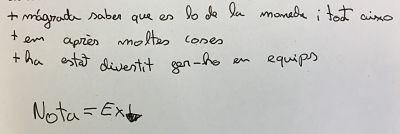 + m'agrada saber que es lo de la moneda i tot aixo
+ em après moltes coses
+ ha estat divertit fer-ho en equips
Nota = Ex